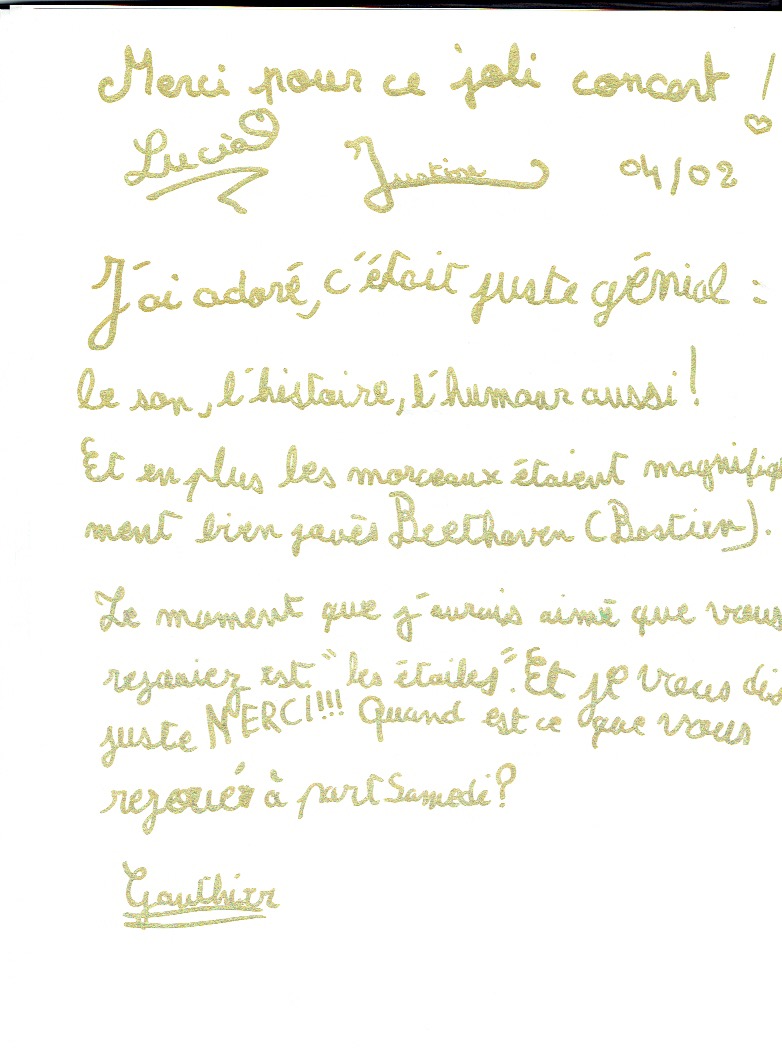 Merci pour ce joli concert !
Lucia Justine 04/02
J'ai adoré, c'était juste génial :
le son, l'histoire, l'humour aussi !
Et en plus les morceaux étaient magnifiq
ment bien joués Beethoven (Bastien).
Le moment que j'aurais aimé que vous
rejouiez est "les étoiles". Et je vous dis
juste MERCI!!! Quand est ce que vous
rejoués à part Samedi?
Gauthier